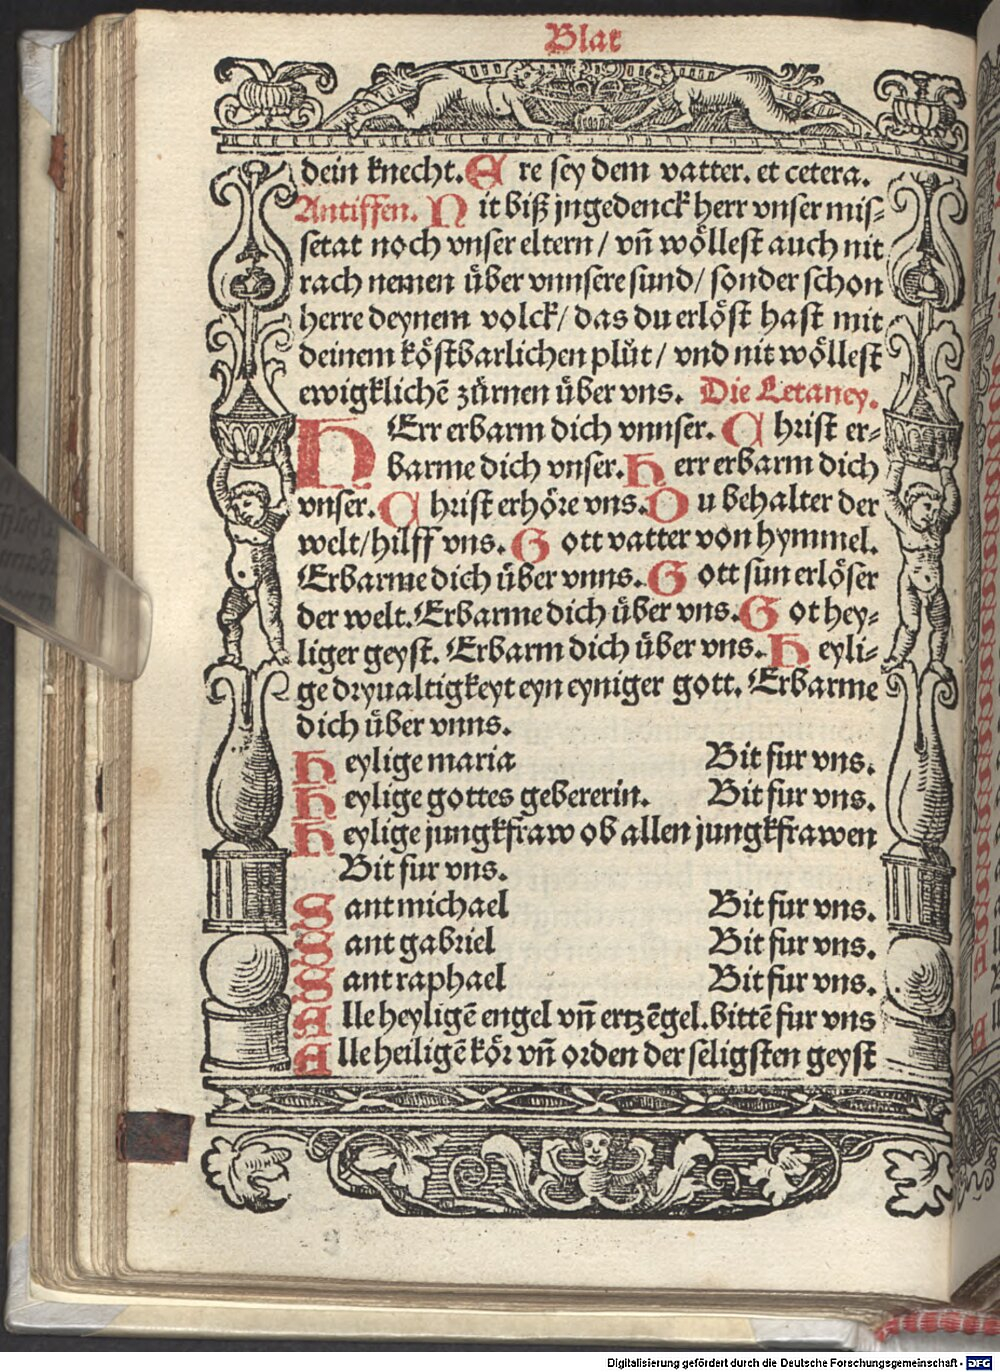 Blat
dein knecht. Ere sey dem vatter. et cetera.
Antiffen. Nit biß jngedenck herr vnser mis-
setat noch vnser eltern / vñ wöllest auch nit
rach nemen über vnnsere sund / sonder schon
herre deynem volck / das du erlöst hast mit
deinem köstbarlichen plůt / vnd nit wöllest
ewigklichẽ zürnen über vns. Die Letaney.
HErr erbarm dich vnnser. Christ er-
barme dich vnser. Herr erbarm dich
vnser. Christ erhöre vns. Du behalter der
welt / hilff vns. Gott vatter von hymmel.
Erbarme dich über vnns. Gott sun erlöser
der welt. Erbarme dich über vns. Got hey-
liger geyst. Erbarm dich über vns. Heyli-
ge dryualtigkeyt eyn eyniger gott. Erbarme
dich über vnns.
Heylige maria Bit fur vns.
Heylige gottes gebererin. Bit fur vns.
Heylige jungkfraw ob allen jungkfrawen
Bit fur vns.
Sant michael Bit fur vns.
Sant gabriel Bit fur vns.
Sant raphael Bit fur vns.
Alle heyligẽ engel vñ ertzẽgel. bittẽ fur vns
Alle heiligẽ kör vñ orden der seligsten geyst
Digitalisierung gefördert durch die Deutsche Forschungsgemeinschaft - DFG